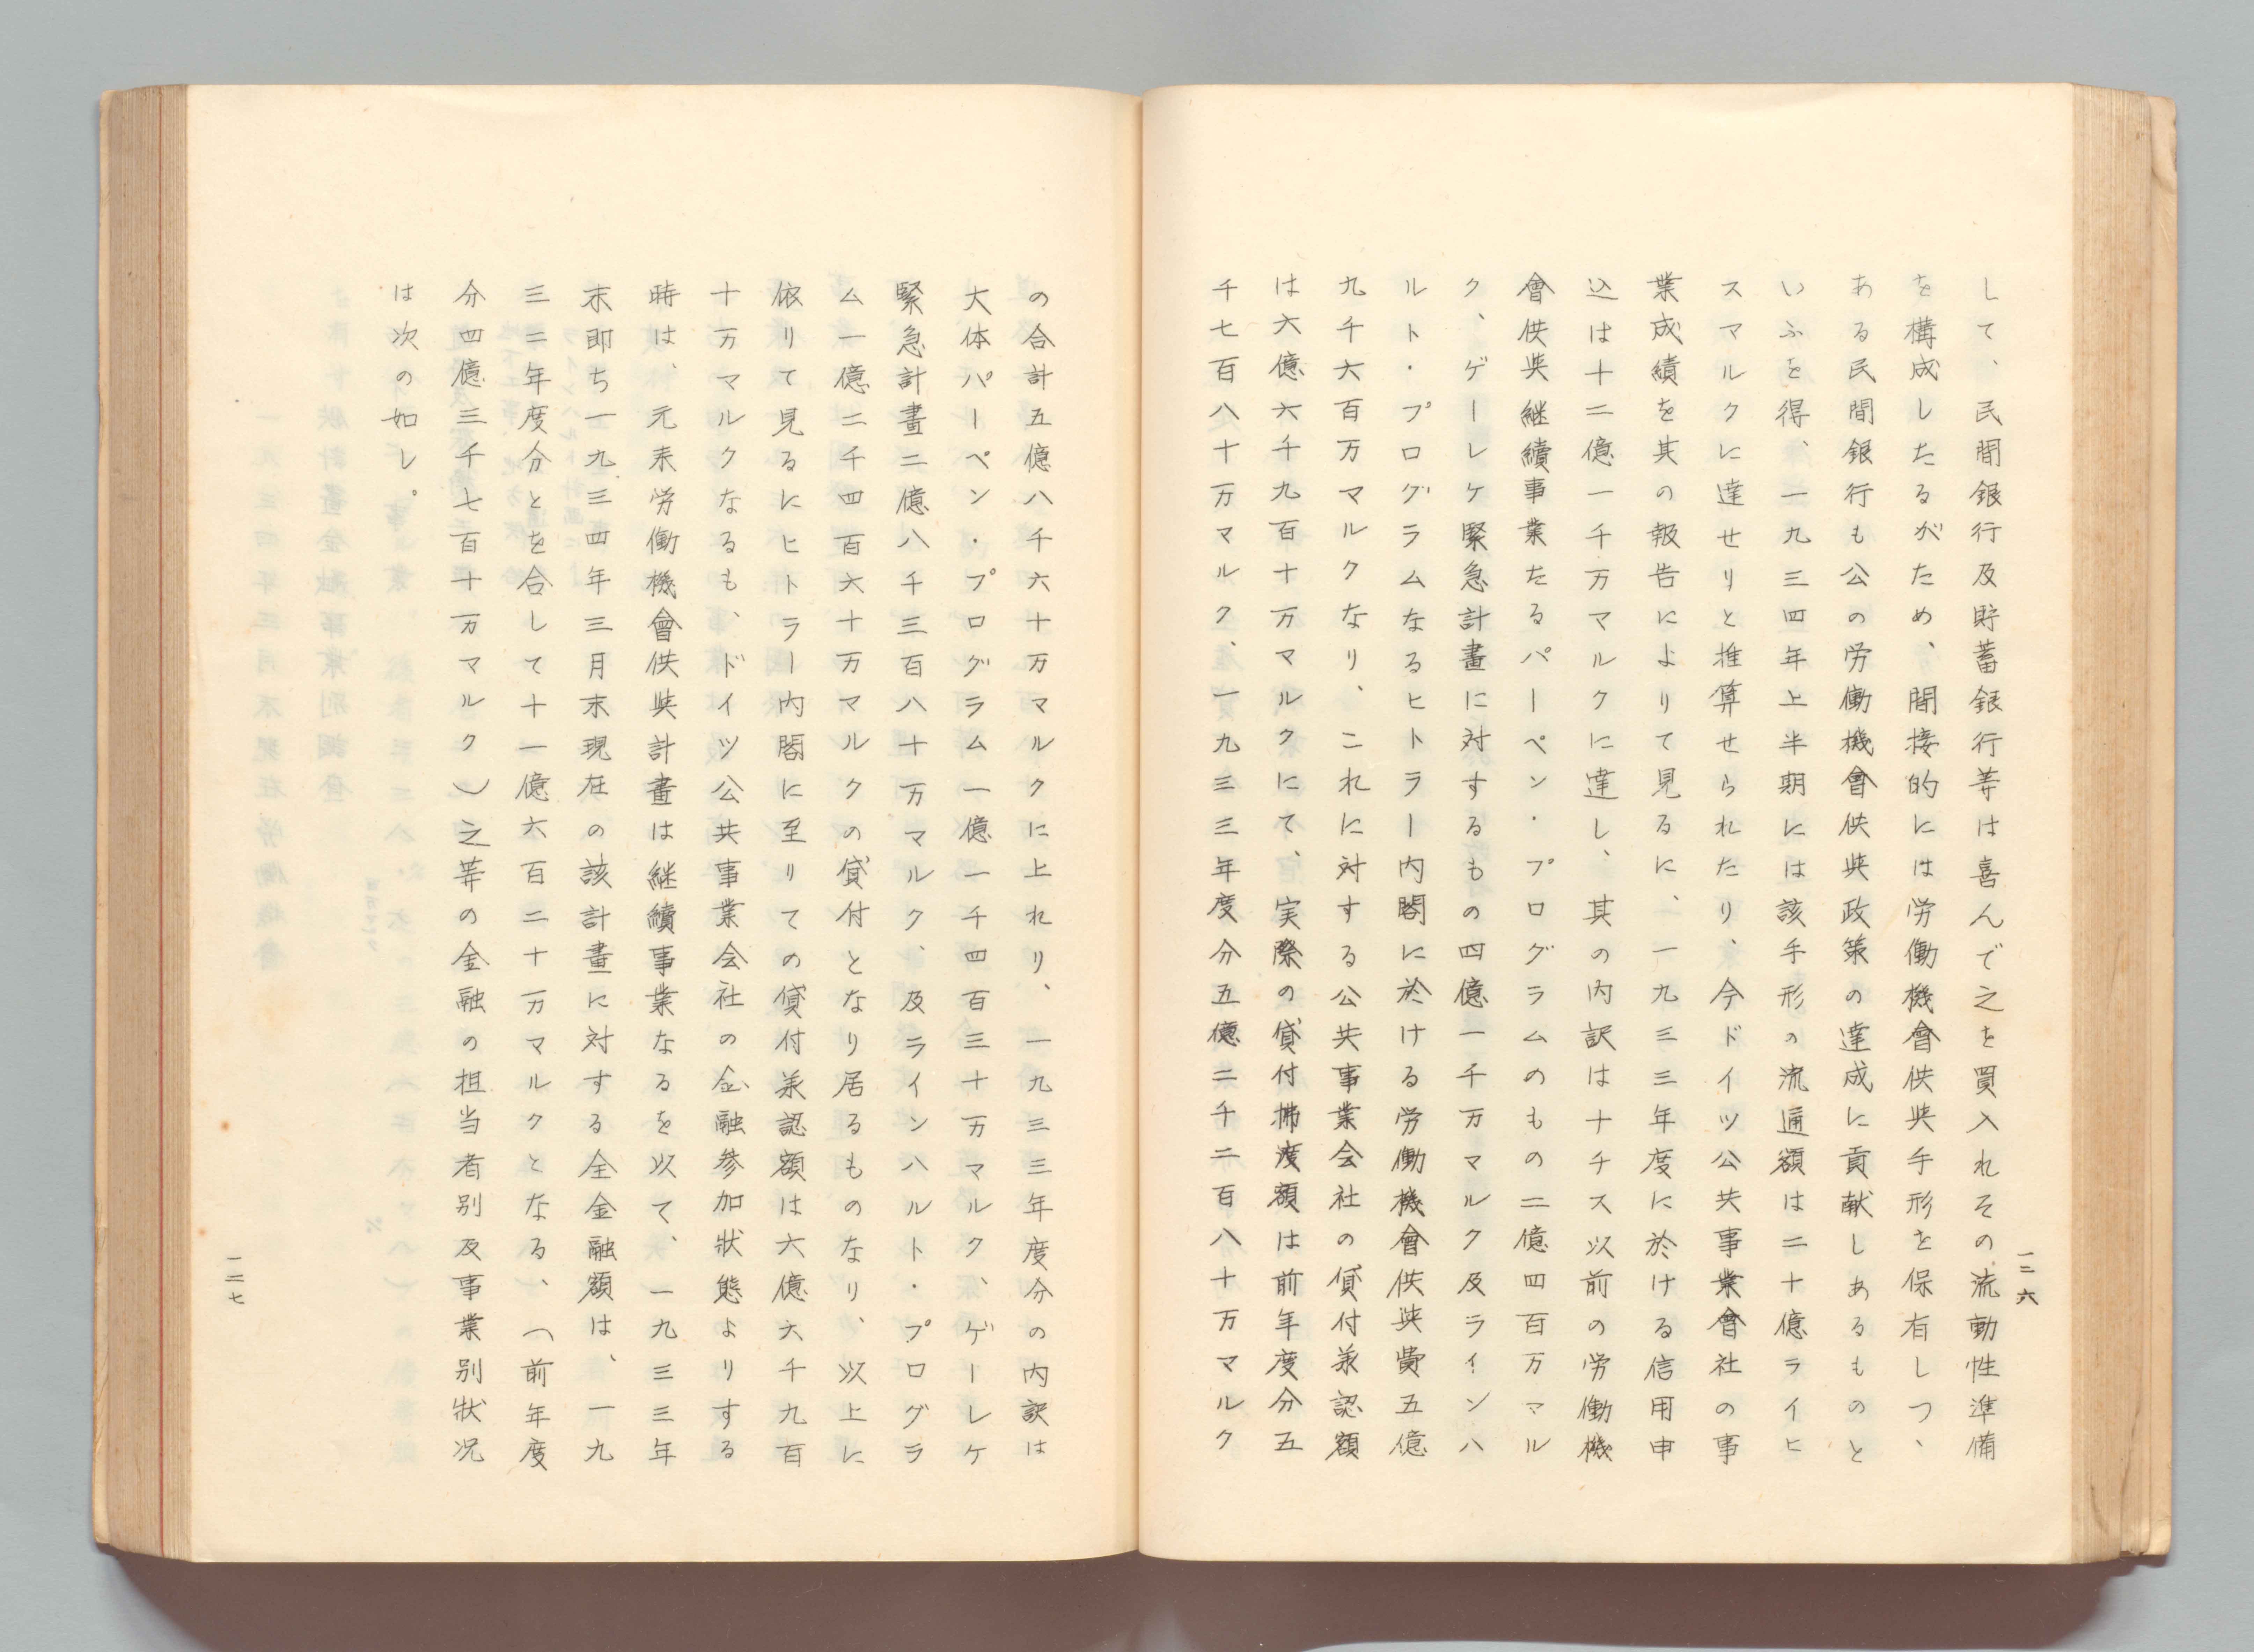 一二六
して、民間銀行及貯蓄銀行等は喜んで之を買入れその流動性準備
を構成したるがため、間接的には労働機會供與手形を保有しつ、
ある民間銀行も公の労働機會供與政策の達成に貢献しあるものと
いふを得、一九三四年上半期には該手形の流通額は二十億ライヒ
スマルクに達せりと推算せられたり、今ドイツ公共事業會社の事
業成績を其の報告によりて見るに、一九三三年度に於ける信用申
込は十二億一千万マルクに達し、其の内訳はナチス以前の労働機
會供與継續事業たるパーペン・プログラムのもの二億四百万マル
ク、ゲーレケ緊急計畫に対するもの四億一千万マルク及ラインハ
ルト・プログラムなるヒトラー内閣に於ける労働機會供與費五億
九千六百万マルクなり、これに対する公共事業会社の貸付承認額
は六億六千九百十万マルクにて、実際の貸付拂渡額は前年度分五
千七百八十万マルク、一九三三年度分五億二千二百八十万マルク
の合計五億八千六十万マルクに上れり、一九三三年度分の内訳は
大体パーペン・プログラム一億一千四百三十万マルク、ゲーレケ
緊急計畫二億八千三百八十万マルク、及ラインハルト・プログラ
ム一億二千四百六十万マルクの貸付となり居るものなり、以上に
依りて見るにヒトラー内閣に至りての貸付承認額は六億六千九百
十万マルクなるも、ドイツ公共事業会社の金融参加状態よりする
時は、元来労働機會供與計畫は継續事業なるを以て、一九三三年
末即ち一九三四年三月末現在の該計畫に対する全金融額は、一九
三二年度分とを合して十一億六百二十万マルクとなる、（前年度
分四億三千七百十万マルク）之等の金融の担当者別及事業別状况
は次の如し。
一二七